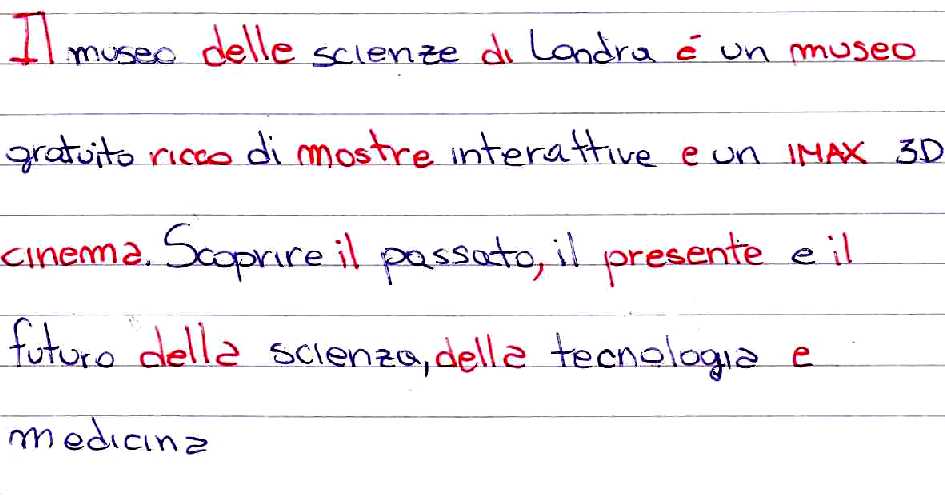 Il museo delle scienze di Londra é un museo
gratuito ricco di mostre interattive e un IMAX 3D
cinema. Scoprire il passato, il presente e il
futuro della scienza, della tecnologia e
medicina